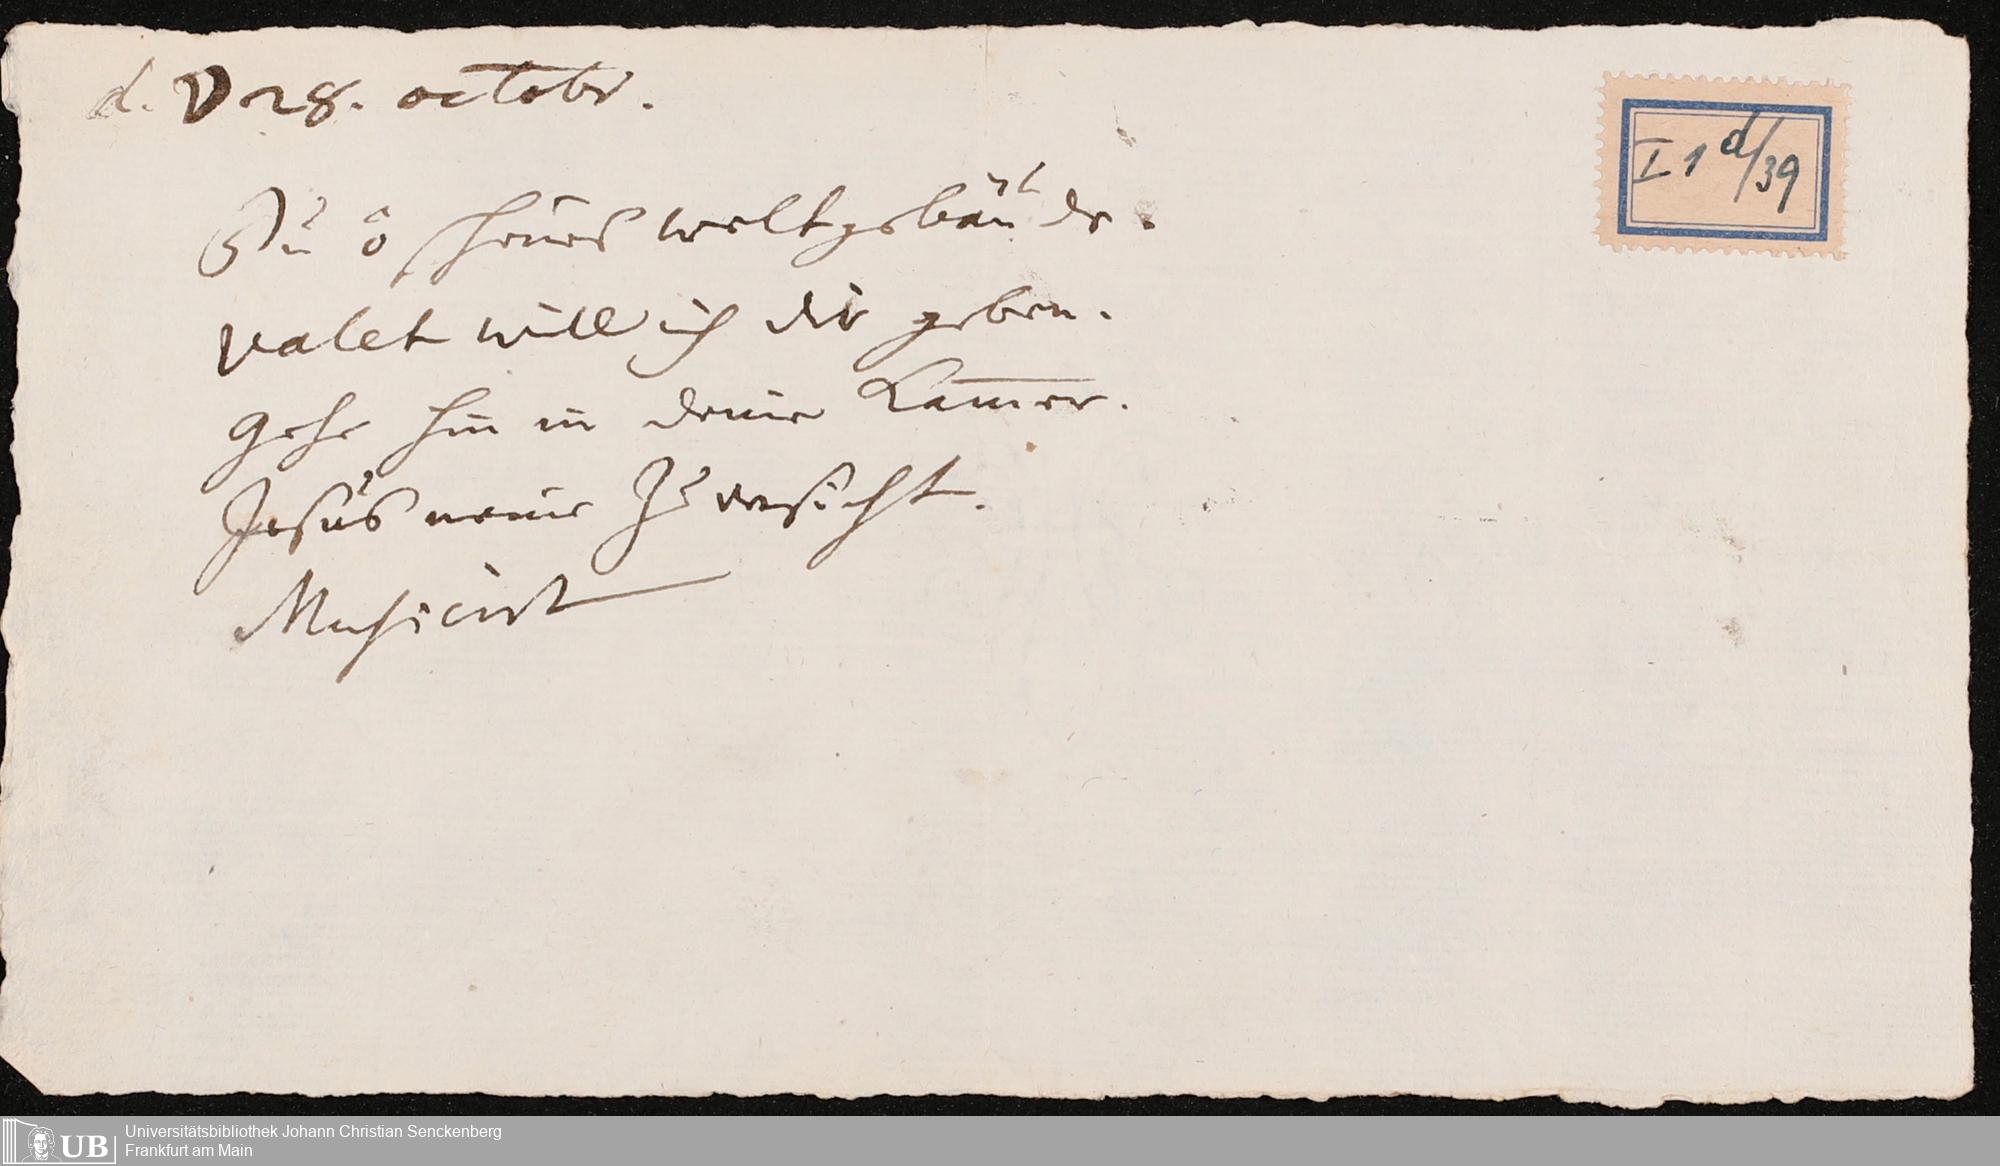 d. V 28. octobr.
I 1 d/39
Du o schönes weltgebäude.
valet will ich dir geben.
gehe hin in deine Kam̅er.
Jesus meine Zuversicht.
Musicirt
UB
Universitätsbibliothek Johann Christian Senckenberg
Frankfurt am Main